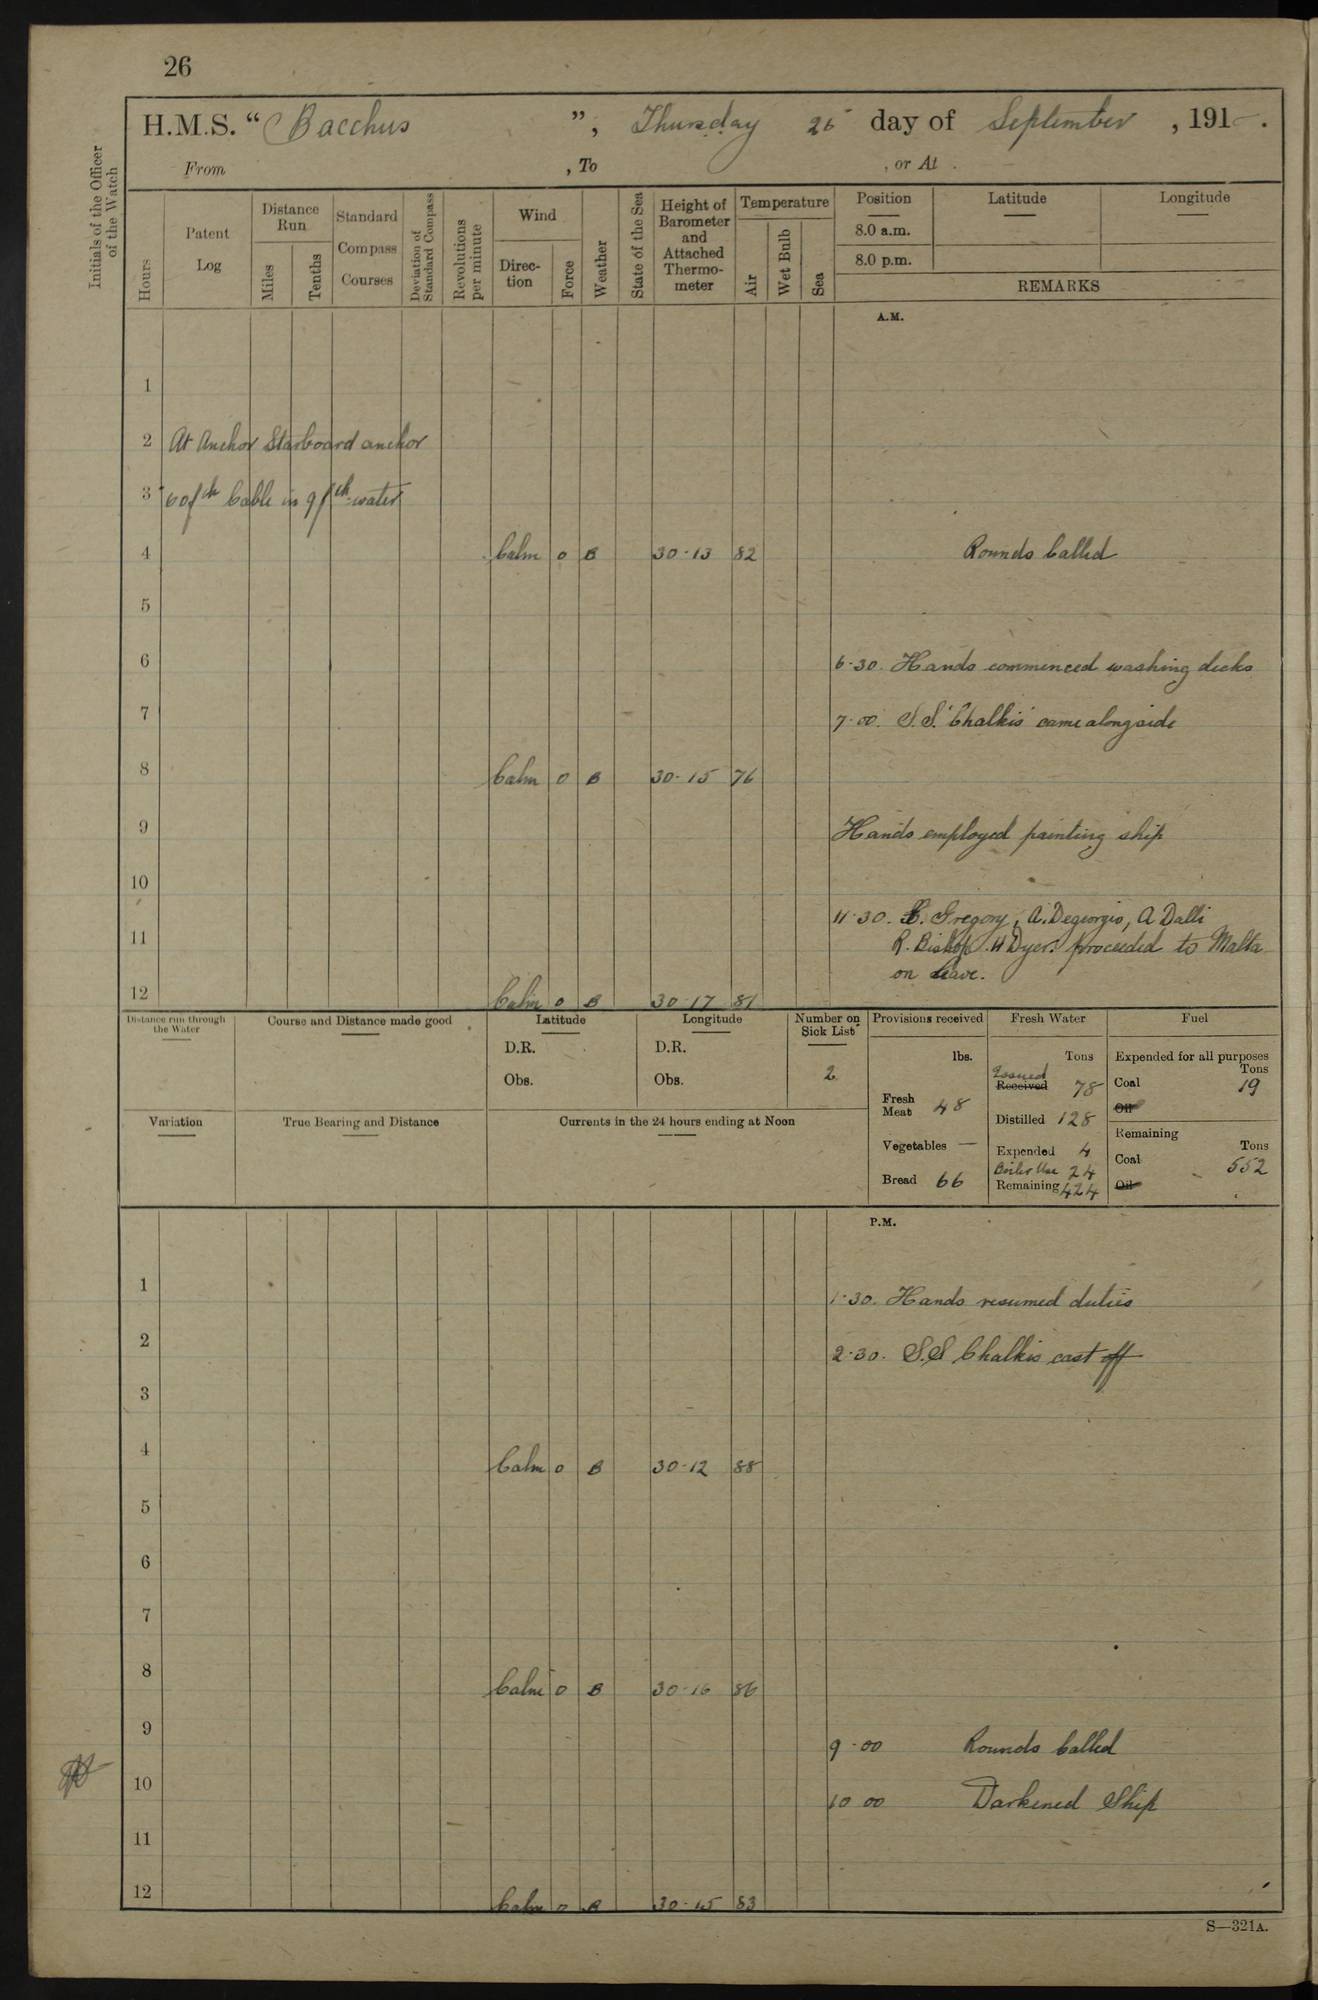 26
H.M.S. “ Bacchus ”, Thursday 26 day of September, 191 .
From , To , or At .
Initials of the Officer of the Watch
Hours
Patent Log
Distance Run
Miles
Tenths
Standard Compass Courses
Deviation of Standard Compass
Revolutions per minute
Wind
Direction
Force
Weather
State of the Sea
Height of Barometer and Attached Thermometer
Temperature
Air
Wet Bulb
Sea
Position Latitude Longitude
8.0 a.m.
8.0 p.m.
REMARKS
A.M.
1
2 At Anchor Starboard anchor
3 60 fth Cable in 9 fth water
4 Calm 0 B 30·13 82 Rounds Called
5
6 6·30. Hands commenced washing decks
7 7·00. S.S. 'Chalkis' came alongside
8 Calm 0 B 30·15 76
9 Hands employed painting ship
10
11·30. Gregory, A. Degeorgio, A Dalli
11 R. Bishop. H Dyer. proceeded to Malta
on leave.
12 Calm 0 B 30·17 81
Distance run through the Water
Course and Distance made good
Latitude
D.R.
Obs.
Longitude
D.R.
Obs.
Number on Sick List
2
Variation
True Bearing and Distance
Currents in the 24 hours ending at Noon
Provisions received
lbs.
Fresh Meat 48
Vegetables —
Bread 66
Fresh Water
Tons
Issued
Received 78
Distilled 128
Expended 4
Boiler Use 24
Remaining 424
Fuel
Expended for all purposes
Tons
Coal 19
Oil
Remaining
Tons
Coal 552
Oil
P.M.
1 1·30. Hands resumed duties
2 2·30. S.S Chalkis cast off
3
4 Calm 0 B 30·12 88
5
6
7
8 Calm 0 B 30·16 86
9 9·00 Rounds Called
10 10 00 Darkened Ship
11
12 Calm 0 B 30·15 83
S—321A.